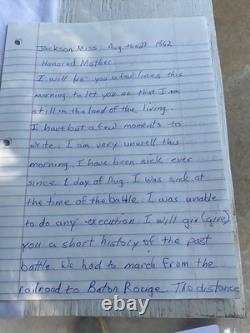 Jackson Miss. Aug the 21 1862
Honored Mother
I will be you a few lines this
morning to let you no that I am
still in the land of the living.
I have but a few moments to
write. I am very unwell this
morning. I have been sick ever
since 1 day of Aug. I was sick at
the time of the battle. I was unable
to do any execution I will give (give)
you a short history of the past
battle. We had to march from the
railroad to Baton Rouge. The distance